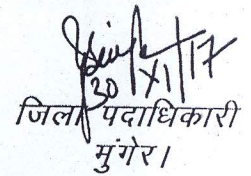 30/XI/17
जिला पदाधिकारी
मुंगेर।